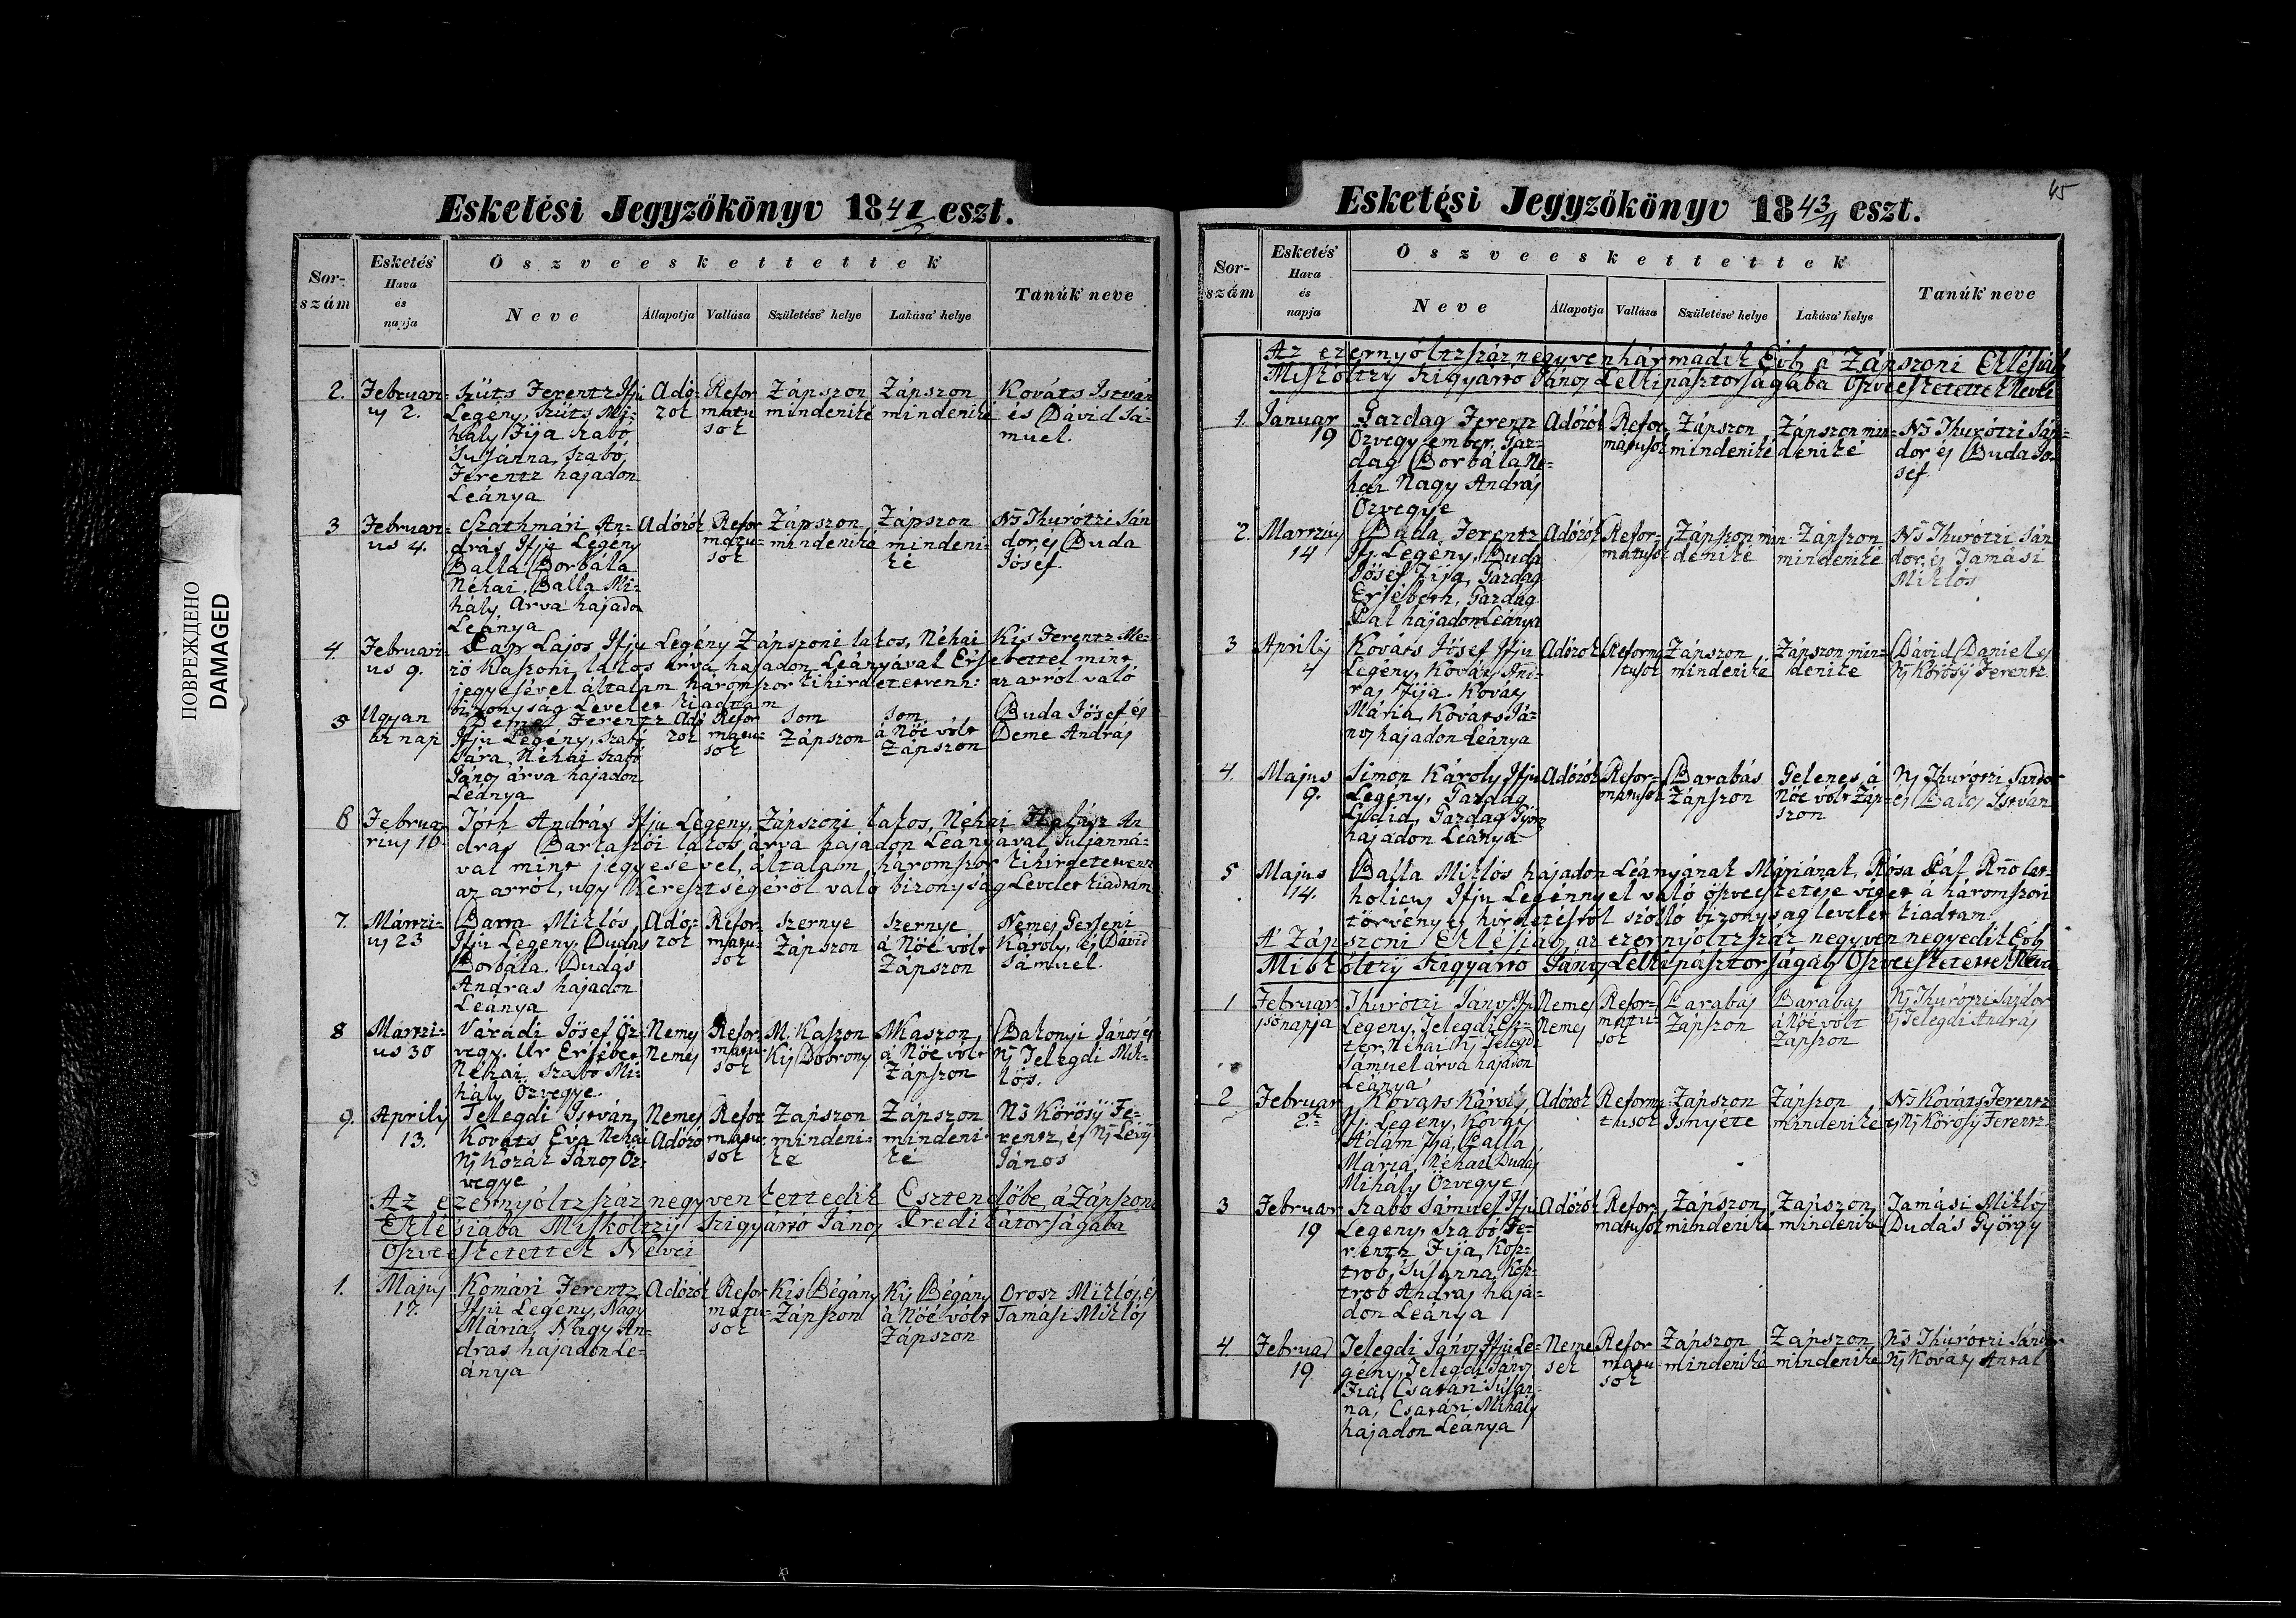 ПОВРЕЖДЕНО
DAMAGED
Esketési Jegyzőkönyv 1841/2 eszt.
Sor-
szám
Esketés'
Hava
és
napja
Öszveeskettettek
Neve
Állapotja
Vallása
Születése' helye
Lakása' helye
Tanúk' neve
2.
Februari-
us 2.
Szüts Ferentz Ifju
Legény, Szüts Mi-
hály Fija Szabó
Susanna, Szabó
Ferentz hajadon
Leánya
Adó-
zok
Refor
matu
sok
Zápszon
mindeniké
Zápszon
mindeniké
Kováts István
és Dávid Sá-
muel.
3
Februari-
us 4.
Szathmári An-
drás Ifju Légény
Balla Borbála
Néhai Balla Mi-
hály Arva hajadon
Leánya
Adózók
Refor
matu-
sok
Zápszon
mindeniké
Zápszon
mindeni-
ké
Ns Thurótzi Sán
dor, és Buda
Jósef.
4.
Februari-
us 9.
Pap Lajos Ifju Legény Zápszoni lakos, Néhai Kis Ferentz Me-
ző Kaszoni lakos árva hajadon Leányával Ersebettel mint
jegyesével általam háromszor kihirdetetvenn: az arrol való
bizonyság Levelet kiadtam
5
Ugyan
az nap
Deme Ferentz
Ifju Legény, Szabó
Sára, Néhai Szabó
János árva hajadon
Leánya
Adó
zok
Refor
matu-
sok
Som
Zápszon
Som
á Nőé vólt
Zápszon
Buda Jósef és
Deme András
6
Februa-
rius 16
Tóth András Ifju Legény, Zápszoni lakos, Néhai Halász An
dras Bartaszói lakos árva hajadon Leányával Juljanná-
val mint jegyesével, általam háromszor kihirdetetvenn
az arról, ugy Keresztségéről való bizonyság Levelet kiadtam
7.
Mártzi-
us 23
Barta Miklós
Ifju Legény, Dudás
Borbála. Dudás
Andras hajadon
Leánya
Adó-
zok
Refor-
matu-
sok
Szernye
Zápszon
Szernye
á Nőé vólt
Zápszon
Nemes Gerseni
Károly, és Dávid
Sámuel.
8
Mártzi-
us 30
Váradi Jósef Öz-
vegy. Ur Ersébet
Néhai Szabo Mi-
hály Özvegye.
Nemes
Nemes
Refor-
matu-
sok
M: Kaszon
Kis Dobrony
M Kaszon
á Nőé vólt
Zápszon
Bakonyi János és
Ns Telegdi Mik-
lós.
9.
Aprilis
13.
Telegdi István
Kováts Éva Néhai
Ns Kozák János Öz-
vegye
Nemes
Adózó
Refor
matu-
sok
Zápszon
mindeni-
ke
Zápszon
mindeni
ké
Ns Körösÿ Fe-
rentz, és Ns Lévÿ
János
Az ezernyóltzszáz negyven kettedik Esztendőbe á Zápszoni
Eklésiaba Miskóltzÿ Szigyártó János Predikátorságába
Öszveesketettek Nevei
1.
Majus
17.
Komári Ferentz
Ifju Legény, Nagy
Mária, Nagy An-
dras hajadon Le-
ánya
Adózók
Refor
matu-
sok
Kis Bégány
Zápszon
Kis Bégány
á Nőé vólt
Zápszon
Orosz Miklós, és
Tamási Miklós
45
Esketési Jegyzőkönyv 1843/4 eszt.
Sor-
szám
Esketés'
Hava
és
napja
Öszveeskettettek
Neve
Állapotja
Vallása
Születése' helye
Lakása' helye
Tanúk' neve
Az ezernyóltzszáz negyven hármadik Évb á Zápszoni Eklésiáb
Miskóltzÿ Szigyártó János Lelkipásztorságába Öszveesketettek Nevei
1.
Januar
19
Gazdag Ferentz
Özvegy ember, Gaz-
dag Borbála Né-
hai Nagy András
Özvegye
Adózók
Refor-
matusok
Zápszon
mindeniké
Zápszon min-
deniké
Ns Thurótzi Sán-
dor és Buda Jó-
sef.
2.
Martzius
14
Buda Ferentz
Ifj. Legény, Buda
Jósef Fija, Gazdag
Ersébeth, Gazdag
Pal hajadon Leánya
Adózók
Refor-
matusok
Zápszon min
deniké
Zápszon
mindeniké
Ns Thurótzi Sán
dor, és Tamási
Miklós
3
Aprilis
4
Kováts Jósef Ifju
Legény, Kováts And-
ras Fija. Kováts
Mária, Kováts Já-
nos hajadon Leánya
Adózok
Reforma
tusok
Zápszon
mindeniké
Zápszon min-
deniké
Dávid Daniel és
Ns Körösÿ Ferentz
4.
Majus
9.
Simon Károly Ifju
Legény, Gazdag
Lidid, Gazdag Györ
hajadon Leánya
Adózók
Refor-
matusok
Barabás
Zápszon
Gelenes, á
Nőé vólt Záp-
szon
Ns Thurótzi Sandor
és Balog István
5
Majus
14.
Balla Miklós hajadon Léányának Máriának, Rósa Pál Rno Cat-
holicus Ifju Legénnyel való öszveesketeje véget a háromszori
törvényes hirdetésröl szólló bizonyság levelet kiadtam
A' Zápszoni Eklésiáb, az ezernyóltzszáz negyven negyedik Évb
Miskóltzÿ Szigyártó János Lelkipásztorságáb Öszveesketettek Nevei
1
Februar
1ső napja
Thurótzi János Ifju
Legény, Telegdi Esz-
ter, Néhai Ns Telegdi
Sámuel árva hajadon
Leánya
Nemes
Nemes
Refor-
matu-
sok
Barabás
Zápszon
Barabás
á Nőé vólt
Zápszon
Ns Thurótzi Sándor
Ns Telegdi András
2
Februar
2.
Kováts Károly
Ifj. Legény, Kováts
Ádám Fia, Balla
Máriá, Néhai Dudás
Mihály Özvegye
Adózok
Reforma
tusok
Zápszon
Isnyéte
Zápszon
mindeniké
Ns Kováts Ferentz
és Ns Körösÿ Ferentz.
3
Februar
19
Szabó Sámuel Ifju
Legény, Szabó Fe-
rentz Fija, Kosz-
trob, Susánna, Kosz-
trob Andras haja-
don Leánya
Adózók
Refor-
matusok
Zápszon
mindeniké
Zapszon
mindenike
Tamási Miklós
Dudás György
4.
Februar
19
Telegdi János Ifju Le-
gény, Telegdi János
Fia, Csatári Susán-
na, Csatári Mihály
hajadon Leánya
Neme
sek
Refor
matu
sok
Zápszon
mindeniké
Zapszon
mindeniké
Ns Thurótzi Sándor
Ns Kováts Antal